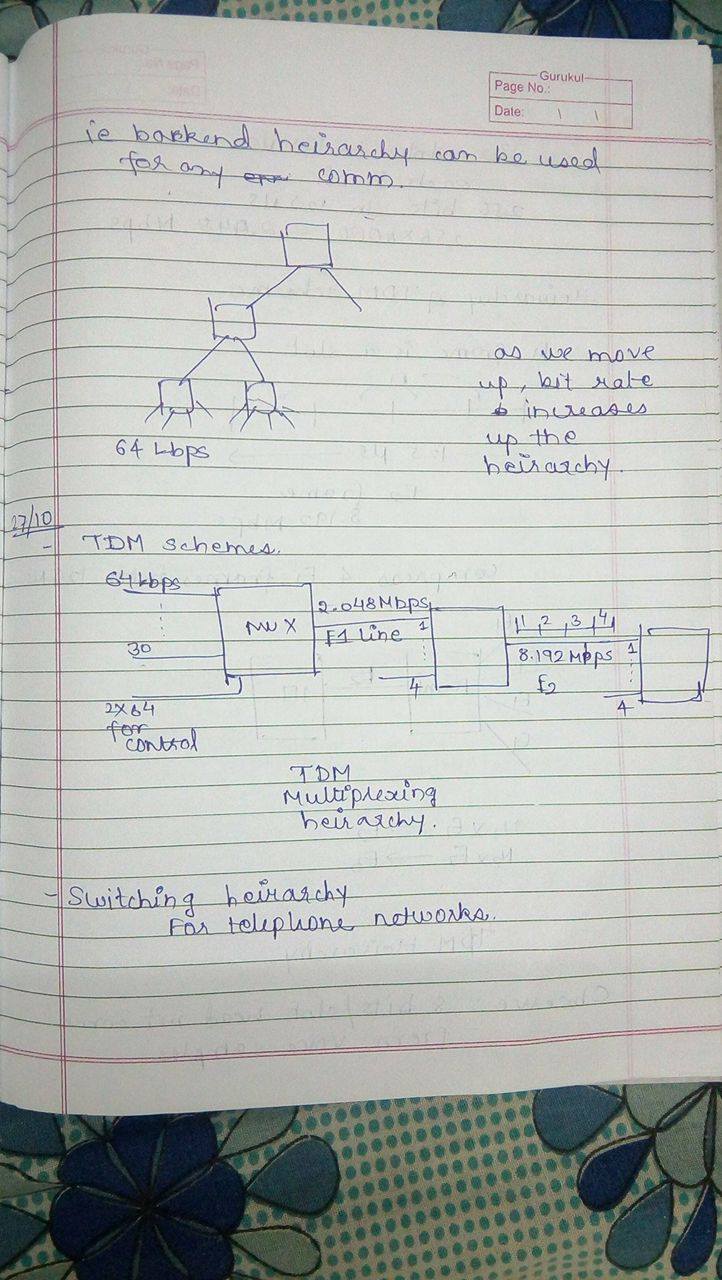 Gurukul
Page No.:
Date:
ie backend heirarchy can be used
for any comm.
as we move
up, bit rate
increases
up the
heirarchy.
64 kbps
27/10
- TDM schemes.
64 kbps
30
2x64
for
control
MUX
2.048Mbps
E1 Line
1
4
1 2 3 4
8.192 Mbps
E2
1
4
TDM
Multiplexing
heirarchy.
- Switching heirarchy
For telephone networks.